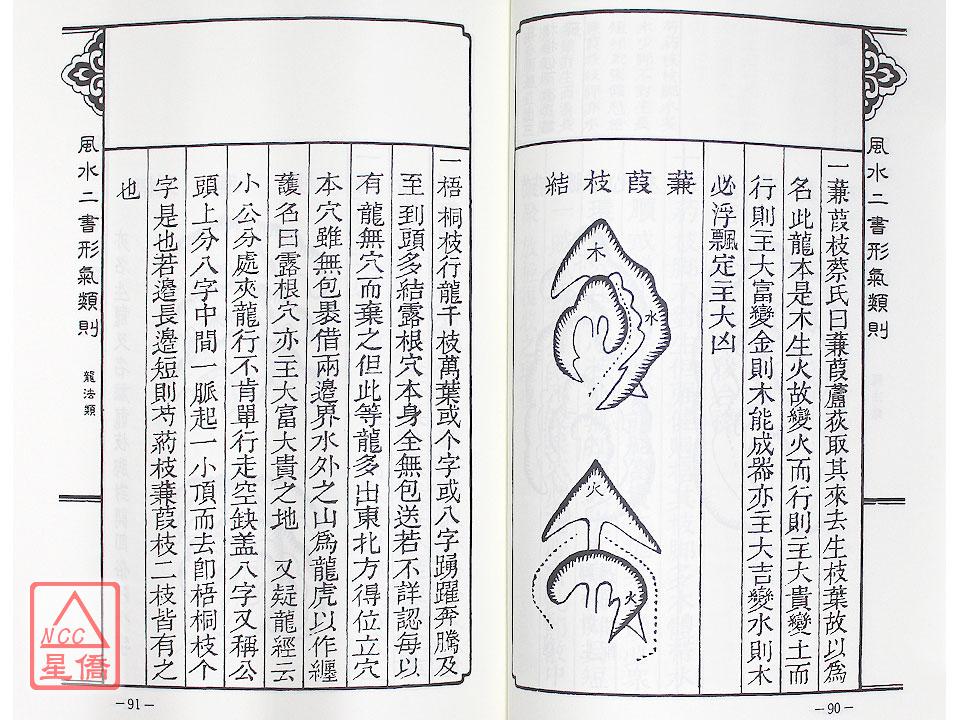 風水二書形氣類則
一蒹葭枝蔡氏曰蒹葭蘆荻取其來去生枝葉故以為
名此龍本是木生火故變火而行則主大貴變土而
行則主大富變金則木能成器亦主大吉變水則木
必浮飄定主大凶
蒹葭枝結
木
水
火
火
－90－
一梧桐枝行龍千枝萬葉或个字或八字踴躍奔騰及
至到頭多結露根穴本身全無包送若不詳認每以
有龍無穴而棄之但此等龍多出東北方得位立穴
本穴雖無包裹借兩邊界水外之山為龍虎以作纏
護名曰露根穴亦主大富大貴之地 又疑龍經云
小公分處夾龍行不肯單行走空缺盖八字又稱公
頭上分八字中間一脈起一小頂而去卽梧桐枝个
字是也若邊長邊短則芍葯枝蒹葭枝二枝皆有之
也
風水二書形氣類則
龍法類
－91－
NCC
星僑